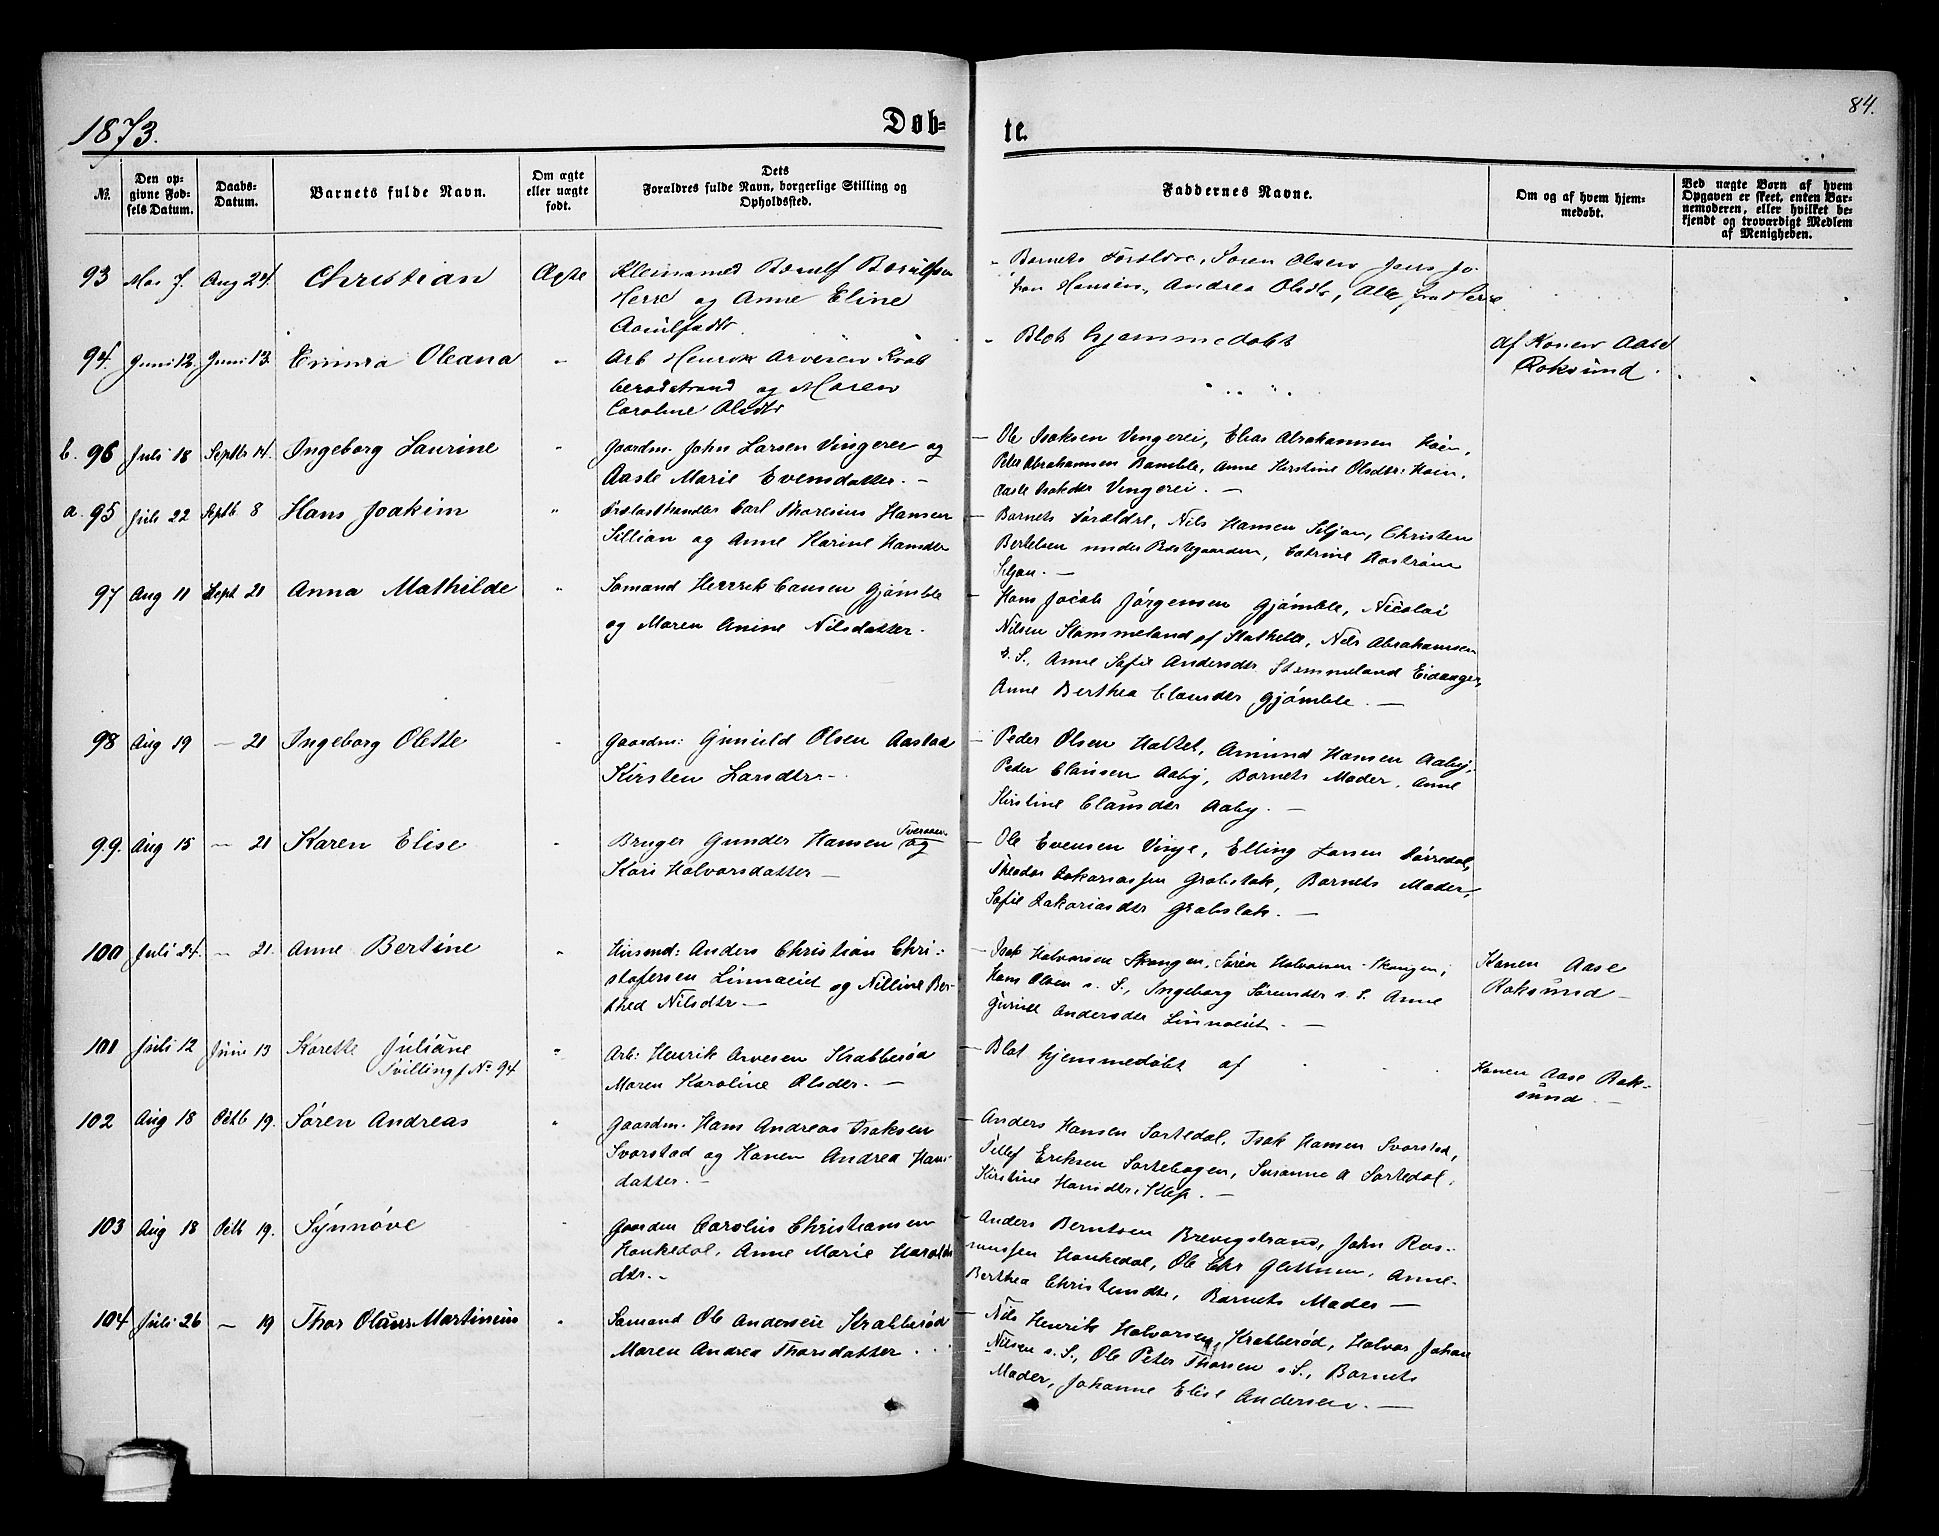 84.
1873.
Døb=
te.
No.
Den op=
givne Fød=
sels Datum.
Daabs=
Datum.
Barnets fulde Navn.
Om ægte
eller uægte
født.
Dets
Forældres fulde Navn, borgerlige Stilling og
Opholdssted.
Faddernes Navne.
Om og af hvem hjem=
medøbt.
Ved uægte Børn af hvem
Opgaven er skeet, enten Bar=
nemoderen, eller hvilket be=
kjendt og troværdigt Medlem
af Menigheden.
93 Mai 7. Aug 24. Christian Ægte
Herre og Anne Eline
Barnets Forældre, Søren Olsen, Jens Jo-
han Hansen, Andrea Olsdtr,
94. Juni 12, Juni 13 Emma Oleana "
Arb Henrik Arvesen Krab
berødstrand og Maren
Caroline Olsdtr
" Blot hjemmedøbt
af Konen Aase
Roksund.
b. 96 Juli 18 Septb 14. Ingeborg Laurine "
Gaardm. John Larsen Vingerei og
Aaste Marie Evensdatter. —
— Ole Isaksen Vingerei, Elias Abrahamsen Hoen,
Peter Abrahamsen Bamble, Anne Kirstine Olsdtr: Hoen,
Aaste Isaksdtr Vingerei. —
a. 95 Juli 22 Septb 8 Hans Joakim "
Carl Thoresius Hansen
Sillian og Anne Karine Hansdtr
— Barnets Forældre, Nils Hansen Siljan, Christen
Bertelsen under Præstegaarden, Catrine Aastrøm
Siljan. —
97 Aug 11 Sept 21 Anna Mathilde "
Sømand Henrik Clausen Gjømble
og Maren Anine Nilsdatter.
— Hans Jacob Jørgensen Gjømble, Nicolai
Nilsen Stommeland af Stathelle, Nils Abrahamsen
s. S., Anne Sofie Andersdtr Stommeland Eidanger,
Anne Berthea Clausdtr Gjømble. —
98 Aug 19 — 21 Ingeborg Olette "
Gaardm: Gunuld Olsen Aastad
Kirsten Larsdtr. —
— Peder Olsen Haltet, Amund Hansen Aaby,
Peter Clausen Aaby, Barnets Moder, Anne
Kirstine Clausdtr Aaby. —
99. Aug 15 — 21 Karen Elise "
Bruger Gunder Hansen Tveraaen og
Kari Halvorsdatter —
— Ole Evensen Vinje, Elling Larsen Tørredal,
Theodor Zakariassen Grobstok, Barnets Moder,
Sofie Zakariasdtr Grobstok. —
100 Juli 24. — 21. Anne Bertine "
Husmd: Anders Christian Chri=
stofersen Linnaeid og Nilline Ber-
thed Nilsdtr. —
— Isak Halvorsen Skougen, Søren Halvorsen Skougen,
Hans Olsen s. S., Ingeborg Sørensdtr s. S. Anne
Gurine Andersdtr Linnaeid. —
Konen Aase
Roksund —
101 Juli 12 Juni 13 Karette Juliane "
Tvilling f No 94
Arb: Henrik Arvesen Krabberød
Maren Karoline Olsdtr. —
— Blot hjemmedøbt af
Konen Aase Rok-
sund —
102 Aug 18 Octb 19. Søren Andreas "
Gaardm. Hans Andreas Isaksen
Svorstad og Konen Andrea Hans-
datter. —
— Anders Hansen Sortedal, Isak Hansen Svorstad,
Tellef Eriksen Sortebogen, Susanne A Sortedal,
Kirstine Hansdtr. Klep. —
103 Aug 18 Octb 19. Synnøve "
Gaardm Carolius Christiansen
Haukedal, Anne Marie Harolds
dtr. —
— Anders Berntsen Brevigstrand, John Ras-
mussen Haukedal, Ole Chr Glittum, Anne
Berthea Christensdtr, Barnets Moder —
104 Juli 26 — 19 Thor Olaus Martinius "
Sømand Ole Andersen Krabberød
Maren Andrea Thorsdatter
— Nils Henrik Halvorsen, Krabberød, Halvor Johan
Nilsen s. S., Ole Peter Thorsen s. S., Barnets
Moder, Johanne Elise Andersen. —